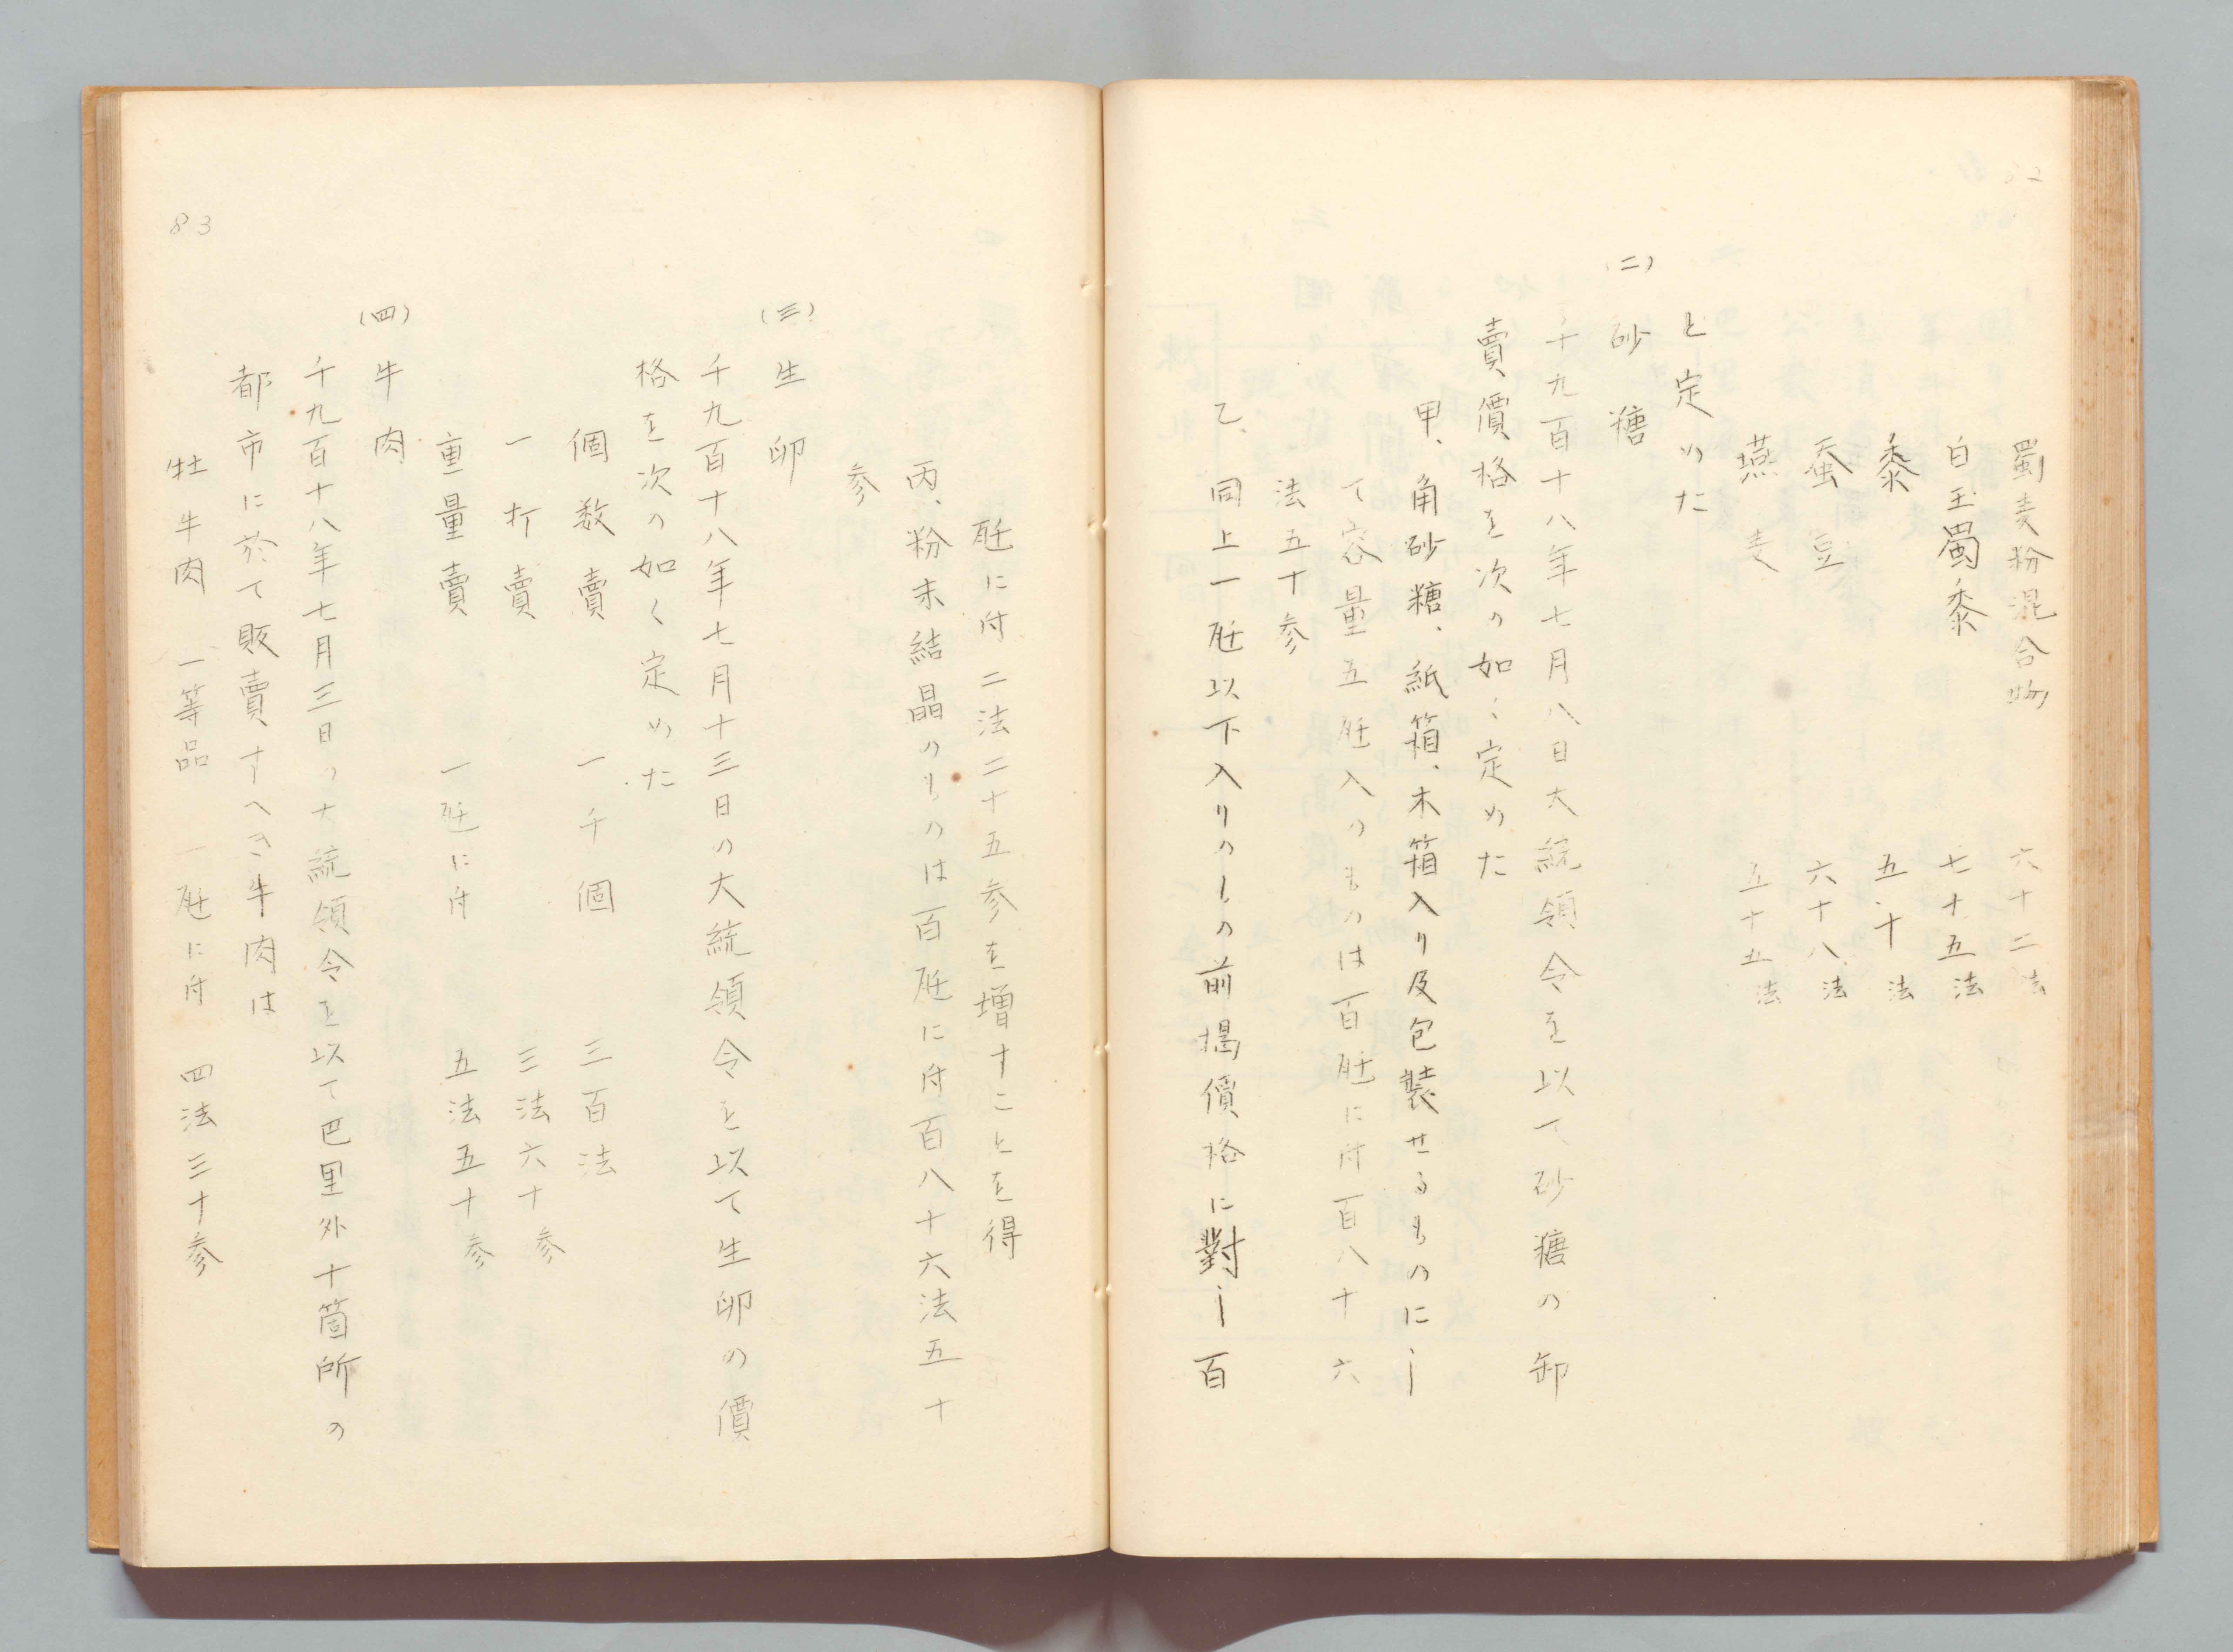 82
蜀麦粉混合物 六十二法
白玉蜀黍 七十五法
黍 五十法
蚕豆 六十八法
燕麦 五十五法
と定めた
(二) 砂糖
千九百十八年七月八日大統領令を以て砂糖の卸
賣價格を次の如く定めた
甲、角砂糖、紙箱、木箱入り及包装せるものにし
て容量五瓩入のものは百瓩に付百八十六
法五十参
乙、同上一瓩以下入りのもの前掲價格に對し百
瓩に付二法二十五参を増すことを得
丙、粉末結晶のものは百瓩に付百八十六法五十
参
(三) 生卵
千九百十八年七月十三日の大統領令を以て生卵の價
格を次の如く定めた
個数賣 一千個 三百法
一打賣 三法六十参
重量賣 一瓩に付 五法五十参
(四) 牛肉
千九百十八年七月三日の大統領令を以て巴里外十箇所の
都市に於て販賣すへき牛肉は
牡牛肉 一等品 一瓩に付 四法三十参
83